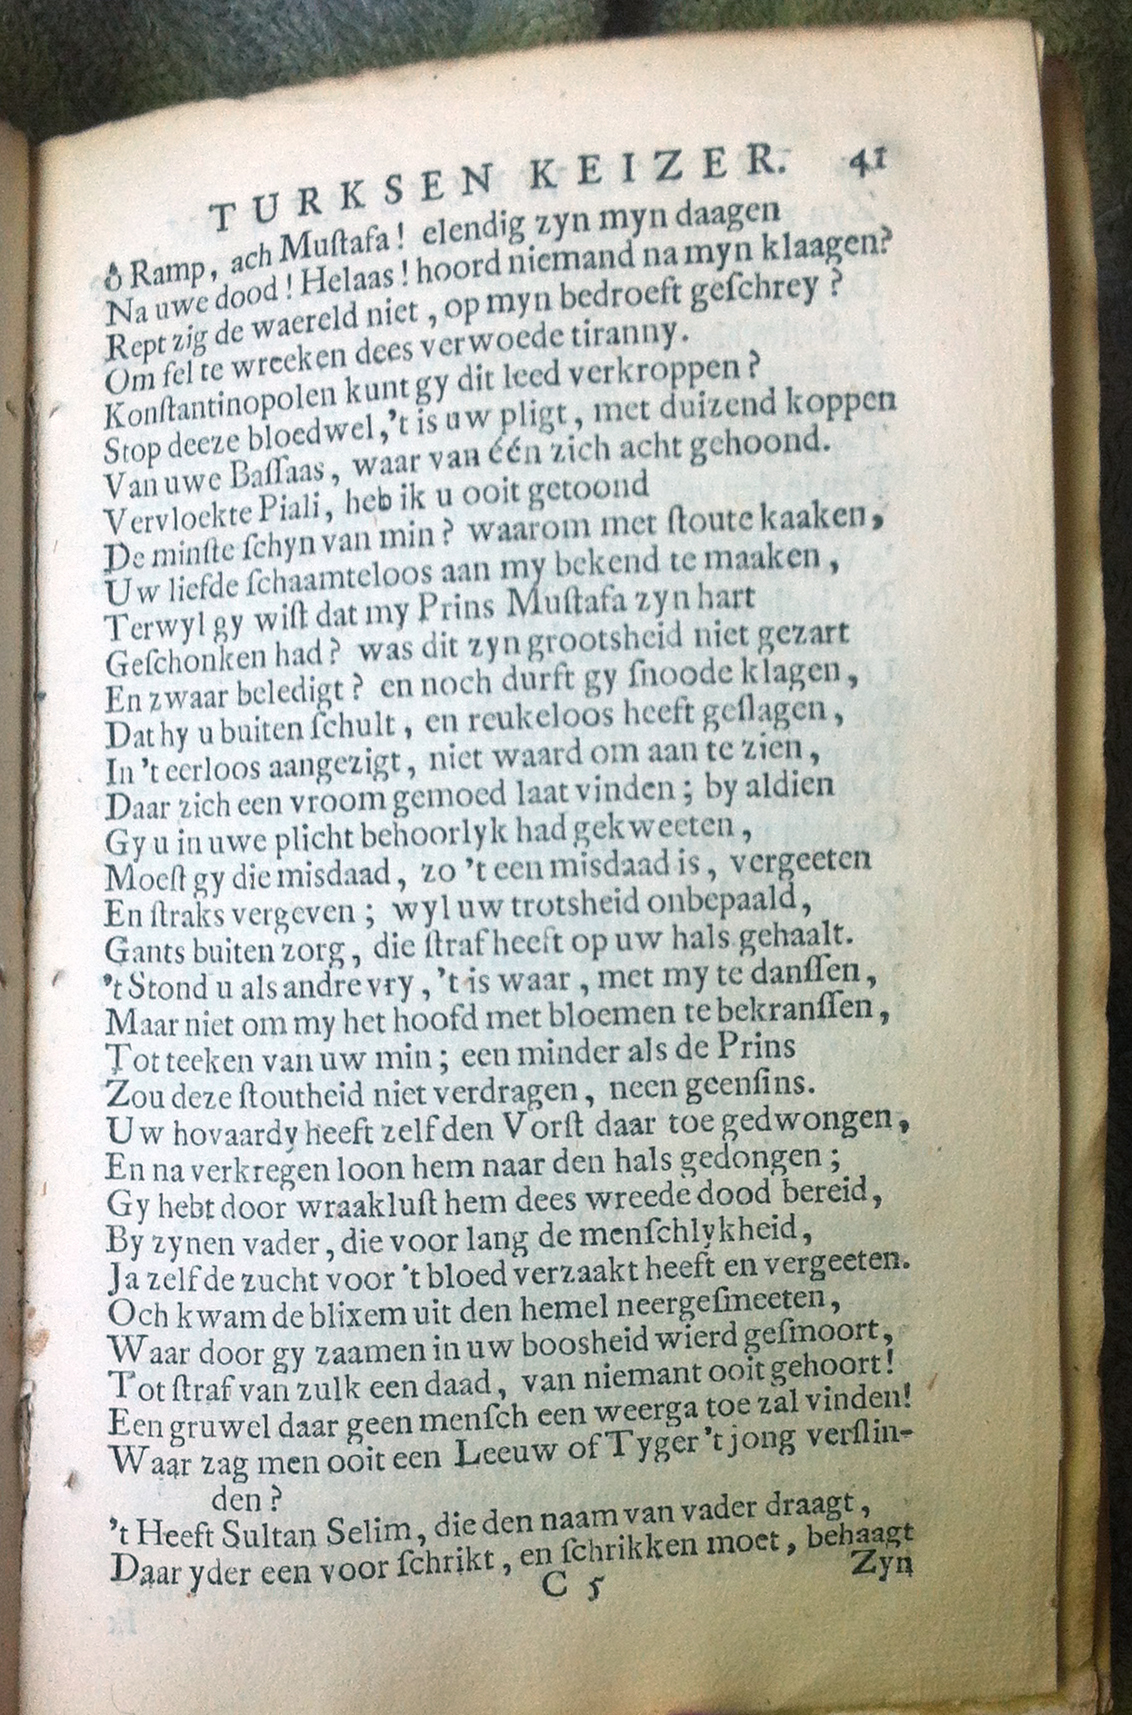 TURKSEN KEIZER. 41
ô Ramp, ach Muſtafa! elendig zyn myn daagen
Na uwe dood! Helaas! hoord niemand na myn klaagen?
Rept zig de waereld niet, op myn bedroeft geſchrey?
Om fel te wreeken dees verwoede tiranny.
Konſtantinopolen kunt gy dit leed verkroppen?
Stop deeze bloedwel, 't is uw pligt, met duizend koppen
Van uwe Baſſaas, waar van één zich acht gehoond.
Vervloekte Piali, heb ik u ooit getoond
De minſte ſchyn van min? waarom met ſtoute kaaken,
Uw liefde ſchaamteloos aan my bekend te maaken,
Terwyl gy wiſt dat my Prins Muſtafa zyn hart
Geſchonken had? was dit zyn grootsheid niet gezart
En zwaar beledigt? en noch durft gy ſnoode klagen,
Dat hy u buiten ſchult, en reukeloos heeft geſlagen,
In 't eerloos aangezigt, niet waard om aan te zien,
Daar zich een vroom gemoed laat vinden; by aldien
Gy u in uwe plicht behoorlyk had gekweeten,
Moeſt gy die misdaad, zo 't een misdaad is, vergeeten
En ſtraks vergeven; wyl uw trotsheid onbepaald,
Gants buiten zorg, die ſtraf heeft op uw hals gehaalt.
't Stond u als andre vry, 't is waar, met my te danſſen,
Maar niet om my het hoofd met bloemen te bekranſſen,
Tot teeken van uw min; een minder als de Prins
Zou deze ſtoutheid niet verdragen, neen geenſins.
Uw hovaardy heeft zelf den Vorſt daar toe gedwongen,
En na verkregen loon hem naar den hals gedongen;
Gy hebt door wraakluſt hem dees wreede dood bereid,
By zynen vader, die voor lang de menſchlykheid,
Ja zelf de zucht voor 't bloed verzaakt heeft en vergeeten.
Och kwam de blixem uit den hemel neergeſmeeten,
Waar door gy zaamen in uw boosheid wierd geſmoort,
Tot ſtraf van zulk een daad, van niemant ooit gehoort!
Een gruwel daar geen menſch een weerga toe zal vinden!
Waar zag men ooit een Leeuw of Tyger 't jong verſlin-
den?
't Heeft Sultan Selim, die den naam van vader draagt,
Daar yder een voor ſchrikt, en ſchrikken moet, behaagt
C 5 Zyn